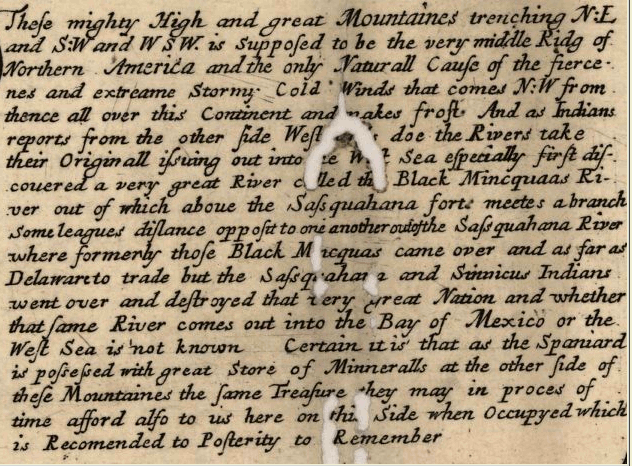 Theſe mighty High and great Mountaines trenching N:E
and S:W and W S W. is Supposed to be the very middle Ridg of
Northern America and the only Naturall Cauſe of the fierce-
nes and extreame Stormy Cold Winds that comes N:W from
thence all over this Continent and makes froſt And as Indians
reports from the other ſide Weſt doe the Rivers take
their Originall iſsuing out into Weſt Sea eſpecially firſt diſ-
couered a very great River called the Black Mincquaas Ri-
ver out of which aboue the Saſsquahana forte meetes a branch
Some leagues diſtance oppoſit to one another out of the Saſsquahana River
where formerly thoſe Black Mincquas came over and as far as
Delaware to trade but the Saſsquahana and Sinnicus Indians
went over and deſtroyed that very great Nation and whether
that ſame River comes out into the Bay of Mexico or the
Weſt Sea is not known Certain it is that as the Spaniard
is poſseſsed with great Store of Minneralls at the other ſide of
theſe Mountaines the ſame Treaſure they may in proces of
time afford alſo to us here on this Side when Occupyed which
is Recomended to Poſterity to Remember